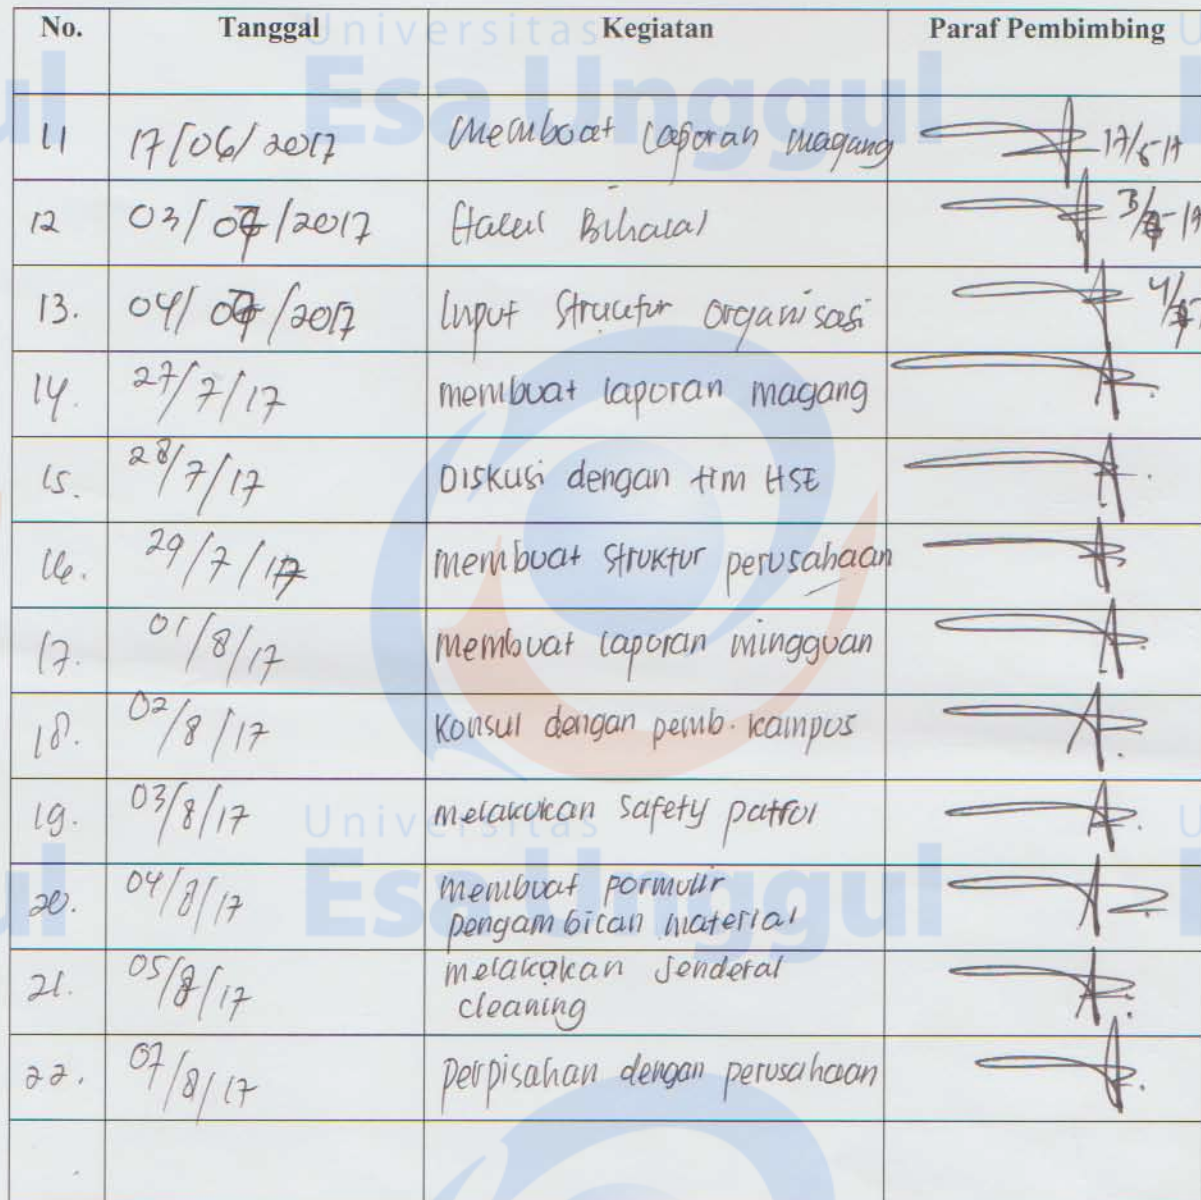 No. Tanggal Kegiatan Paraf Pembimbing
11 17/06/2017 Membuat laporan magang 17/6-17
12 03/07/2017 Halal Bihalal
13. 04/07/2017 Input Strucktur organisasi
14. 27/7/17 membuat laporan magang
15. 28/7/17 DISKUSI dengan tim HSE
16. 29/7/17 membuat struktur perusahaan
17. 01/8/17 membuat laporan mingguan
18. 02/8/17 Konsul dengan pemb. kampus
19. 03/8/17 melakukan safety patrol
20. 04/8/17 membuat pormulir
pengambilan material
21. 05/8/17 melakukan Jenderal
cleaning
22. 07/8/17 perpisahan dengan perusahaan
Universitas
Esa Unggul
Universitas
Esa Unggul